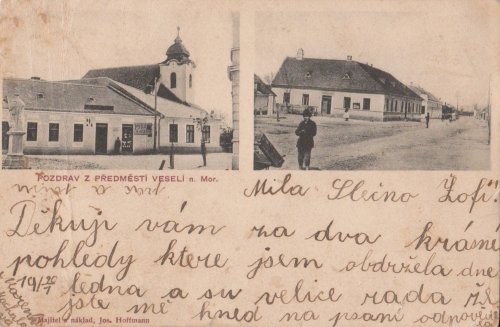 POZDRAV Z PŘEDMĚSTÍ VESELÍ n. Mor.
Mila Slečno Žofi!
Děkuji vám za dva krásné
pohledy ktere jsem obdržela dne
19/1 ledna a su velice rada že
jste mě hned na psaní odpověd
Majitel a náklad, Jos. Hoffmann